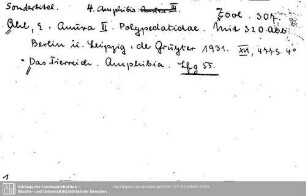 Sondertitel. 4. Amphibia Anura II.
Zool. 307.
Ahl, E. Anura II. Polypedatidae. Mit 320 Abb.
Berlin u. Leipzig, de Gruyter 1931. XVI, 477 S. 4°
"Das Tierreich. Amphibia. Lfg 55.
1
Sächsische Landesbibliothek -
Staats- und Universitätsbibliothek Dresden